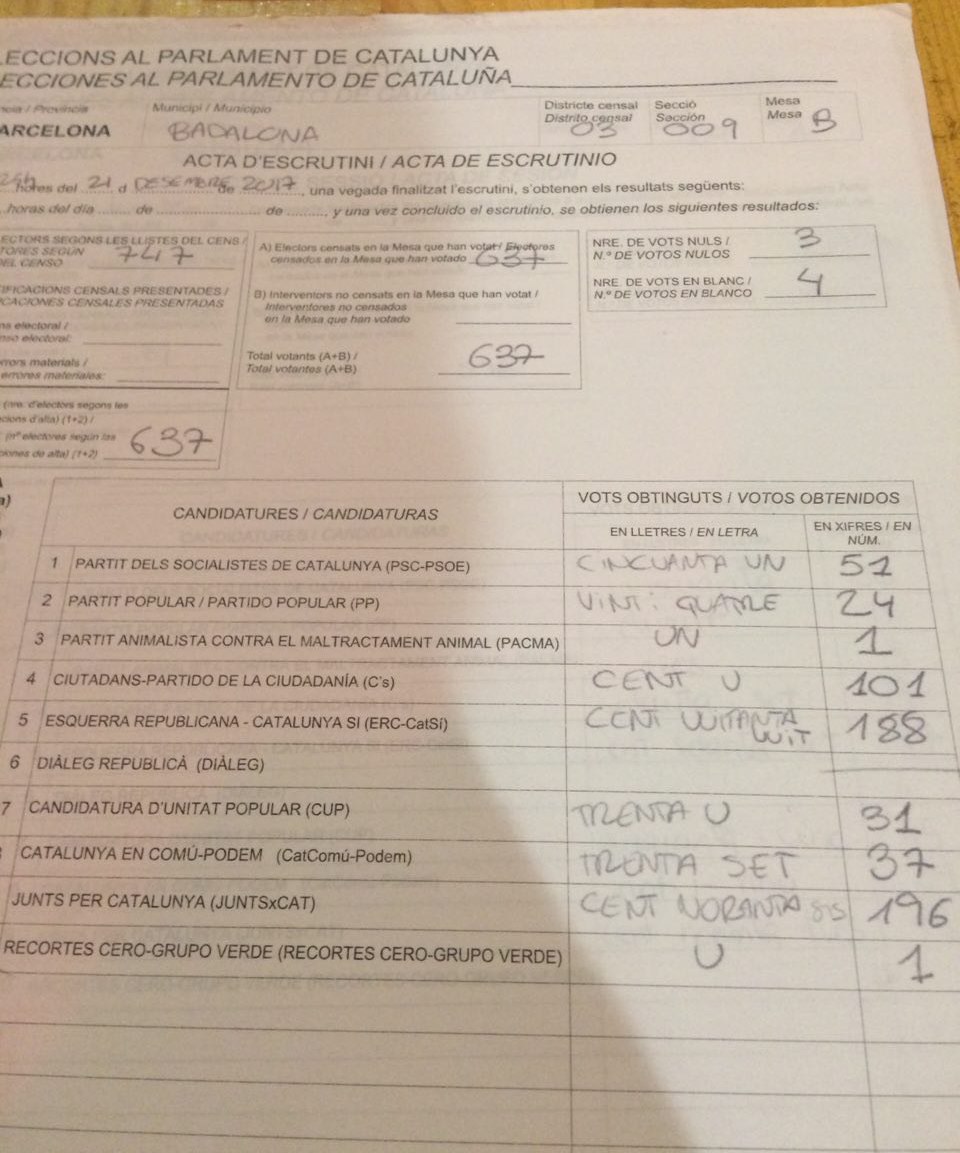 LECCIONS AL PARLAMENT DE CATALUNYA
ECCIONES AL PARLAMENTO DE CATALUÑA
ncia / Provincia Municipi / Municipio Districte censal Secció Mesa
Distrito censal Sección Mesa
ARCELONA BADALONA 03 009 B
ACTA D'ESCRUTINI / ACTA DE ESCRUTINIO
hores del 21 d DESEMBRE de 2017, una vegada finalitzat l'escrutini, s'obtenen els resultats següents:
horas del día ...... de ...... de ......, y una vez concluido el escrutinio, se obtienen los siguientes resultados:
ECTORS SEGONS LES LLISTES DEL CENS /
TORES SEGÚN
DEL CENSO 747
IFICACIONS CENSALS PRESENTADES /
CACIONES CENSALES PRESENTADAS
na electoral /
nso electoral:
rrors materials /
errores materiales:
(nre. d'electors segons les
cions d'alta) (1+2) /
(nº electores según las
ciones de alta) (1+2) 637
A) Electors censats en la Mesa que han votat / Electores
censados en la Mesa que han votado 637
B) Interventors no censats en la Mesa que han votat /
Interventores no censados
en la Mesa que han votado
Total votants (A+B) /
Total votantes (A+B) 637
NRE. DE VOTS NULS /
N.º DE VOTOS NULOS 3
NRE. DE VOTS EN BLANC /
N.º DE VOTOS EN BLANCO 4
CANDIDATURES / CANDIDATURAS VOTS OBTINGUTS / VOTOS OBTENIDOS
EN LLETRES / EN LETRA EN XIFRES / EN NÚM.
1 PARTIT DELS SOCIALISTES DE CATALUNYA (PSC-PSOE) CINCUANTA UN 51
2 PARTIT POPULAR / PARTIDO POPULAR (PP) VINT i QUATRE 24
3 PARTIT ANIMALISTA CONTRA EL MALTRACTAMENT ANIMAL (PACMA) UN 1
4 CIUTADANS-PARTIDO DE LA CIUDADANÍA (C's) CENT U 101
5 ESQUERRA REPUBLICANA - CATALUNYA SÍ (ERC-CatSí) CENT VUITANTA VUIT 188
6 DIÀLEG REPUBLICÀ (DIÀLEG)
7 CANDIDATURA D'UNITAT POPULAR (CUP) TRENTA U 31
CATALUNYA EN COMÚ-PODEM (CatComú-Podem) TRENTA SET 37
JUNTS PER CATALUNYA (JUNTSxCAT) CENT NORANTA SIS 196
RECORTES CERO-GRUPO VERDE (RECORTES CERO-GRUPO VERDE) U 1